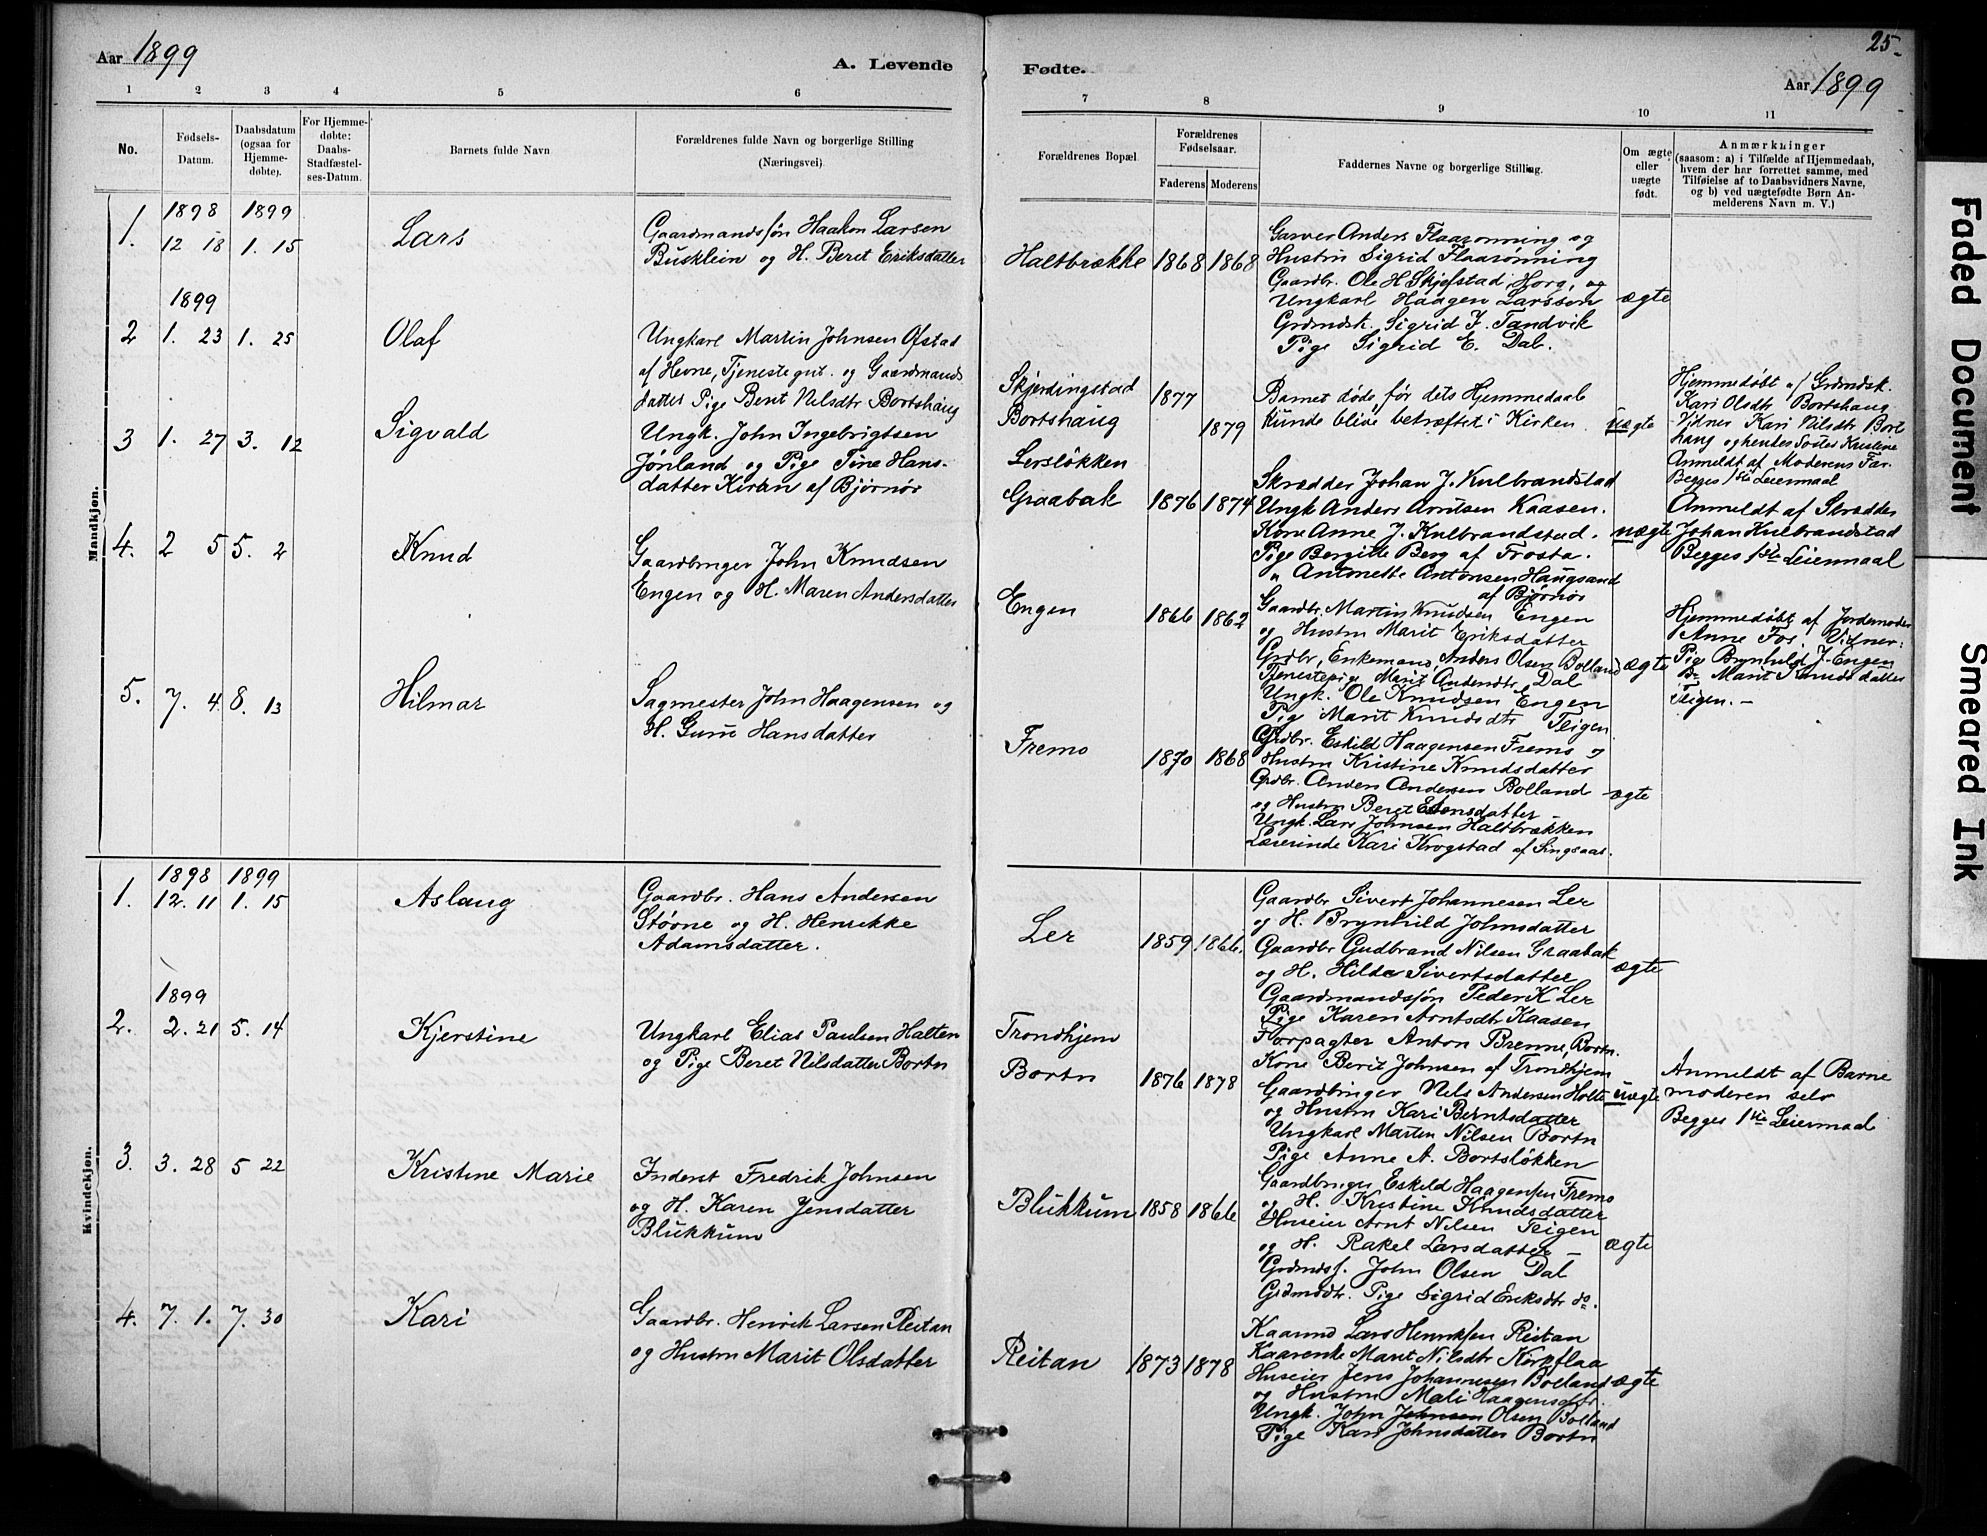 Aar 1899
A. Levende
1 2 3 4 5 6
No.
Fødsels-
Datum.
Daabsdatum
(ogsaa for
Hjemme-
døbte).
For Hjemme-
døbte:
Daabs-
Stadfæstel-
ses-Datum.
Barnets fulde Navn
Forældrenes fulde Navn og borgerlige Stilling
(Næringsvei)
Mandkjøn.
1898 1899
1. 12 18 1. 15 Lars
Gaardmandssøn Haakon Larsen
Busklein og H. Beret Eriksdatter
1899
2 1. 23 1. 25 Olaf
Ungkarl Martin Johnsen Ofstad
af Hevne, Tjenestegut. og Gaardmands
datter Pige Berit Nilsdtr Bortshaug
3 1. 27 3. 12 Sigvald
Ungk. John Ingebrigtsen
Jørland og Pige Tine Hans-
datter Kiran af Bjørnør
4. 2 5 5. 2 Knud
Gaardbruger John Knudsen
Engen og H. Maren Andersdatter
5. 7. 4 8. 13 Hilmar
Sagmester John Haagensen og
H. Guru Hansdatter
Kvindekjøn.
1898 1899
1. 12. 11 1. 15 Aslaug
Gaardbr. Hans Andersen
Støvne og H. Henrikke
Adamsdatter.
1899
2. 2. 21 5. 14 Kjerstine
Ungkarl Elias Paulsen Halten
og Pige Beret Nilsdatter Bortn
3. 3. 28 5 22 Kristine Marie
Inderst Fredrik Johnsen
og H. Karen Jensdatter
Blukkum
4. 7. 1. 7. 30 Kari
Gaardbr. Henrik Larsen Reitan
og Hustru Marit Olsdatter
25.
Fødte.
Aar 1899
7 8 9 10 11
Forældrenes Bopæl.
Forældrenes
Fødselsaar.
Faderens Moderens
Faddernes Navne og borgerlige Stilling.
Om ægte
eller
uægte
født.
Anmærkninger
(saasom: a) i Tilfælde af Hjemmedaab,
hvem der har forrettet samme, med
Tilføielse af to Daabsvidners Navne,
og b) ved uægtefødte Børn An-
melderens Navn m. V.)
Haltbrække 1868 1868
Garver Anders Flaarønning og
Hustru Sigrid Flaarønning
Gaardbr. Ole H Skjefstad, Horg, og
Ungkarl Haagen Larssen
Grdmdsk. Sigrid J. Tandvik
Pige Sigrid E. Dal.
ægte
Skjerdingstad 1877
Bortshaug 1879
Barnet døde før dets Hjemmedaab
kunde blive bekræftet i Kirken.
uægte
Hjemmedøbt af Grdmdsk.
Kari Olsdtr Bortshaug
Vidner Kari Nilsdtr Bort
haug og hendes Søster Kristine
Anmeldt af Moderens Far
Begges 1ste Leiermaal
Lersløkken
Graabak 1876 1874
Skrædder Johan J. Kulbrandstad
Ungk Anders Arntsen Kaasen.
Kone Anne J. Kulbrandstad.
Pige Bergitte Berg af Frosta.
" Antonette Antonsen Haugsand
af Bjørnør
uægte
Anmeldt af Skrædder
Johan Kulbrandstad
Begges 1ste Leiermaal
Engen 1866 1862
Gaardbr. Martin Knudsen Engen
og Hustru Marit Eriksdatter
Grdbr, Enkemand, Anders Olsen Bolland
Tjenestepige Marit Andersdtr Dal
Ungk. Ole Knudsen Engen
Pige Marit Knudsdtr Teigen
ægte
Hjemmedøbt af Jordemoder
Anne Fos. Vidner:
Pige Brynhild J. Engen
Marit Knudsdatter
Teigen. –
Fremo 1870 1868
Grdbr. Eskild Haagensen Fremo og
Hustru Kristine Knudsdatter
Grdbr. Anders Andersen Bolland
og Hustru Beret Estensdatter
Ungk. Lars Johnsen Haltbrækken
Lærerinde Kari Krogstad af Singsaas.
ægte
Ler 1859 1866.
Gaardbr Sivert Johannesen Ler
og H. Brynhild Johnsdatter
Gaardbr Gudbrand Nilsen Graabak
og H. Hilda Sivertsdatter
Gaardmandssøn Peder K Ler
Pige Karen Arntsdtr Kaasen
ægte
Trondhjem
Bortn 1876 1878
Forpagter Anton Brenne, Bortn.
Kone Berit Johnsen af Trondhjem
Gaardbruger Nels Andersen Holte
og Hustru Kari Berntsdatter
Ungkarl Martin Nilsen Bortn
Pige Anne A. Bortsløkken
uægte
Anmeldt af Barne
moderen selv
Begges 1ste Leiermaal
Blukkum 1858 1866
Gaardbruger Eskild Haagensen Fremo
og H. Kristine Knudsdatter
Huseier Arnt Nilsen Teigen
og H. Rakel Larsdatter –
Grdmds. John Olsen Dal
Grdmdtr. Pige Sigrid Eriksdtr do.
ægte
Reitan 1873 1878
Kaarmd Lars Henriksen Reitan
Kaarenke Marit Nilsdtr Kirkflaa
Huseier Jens Johannesen Bolland
og Hustru Mali Haagensdtr.
Ungk. John Johnsen Olsen Bolland
Pige Kari Johnsdatter Bortn
ægte
Faded Document
Smeared Ink